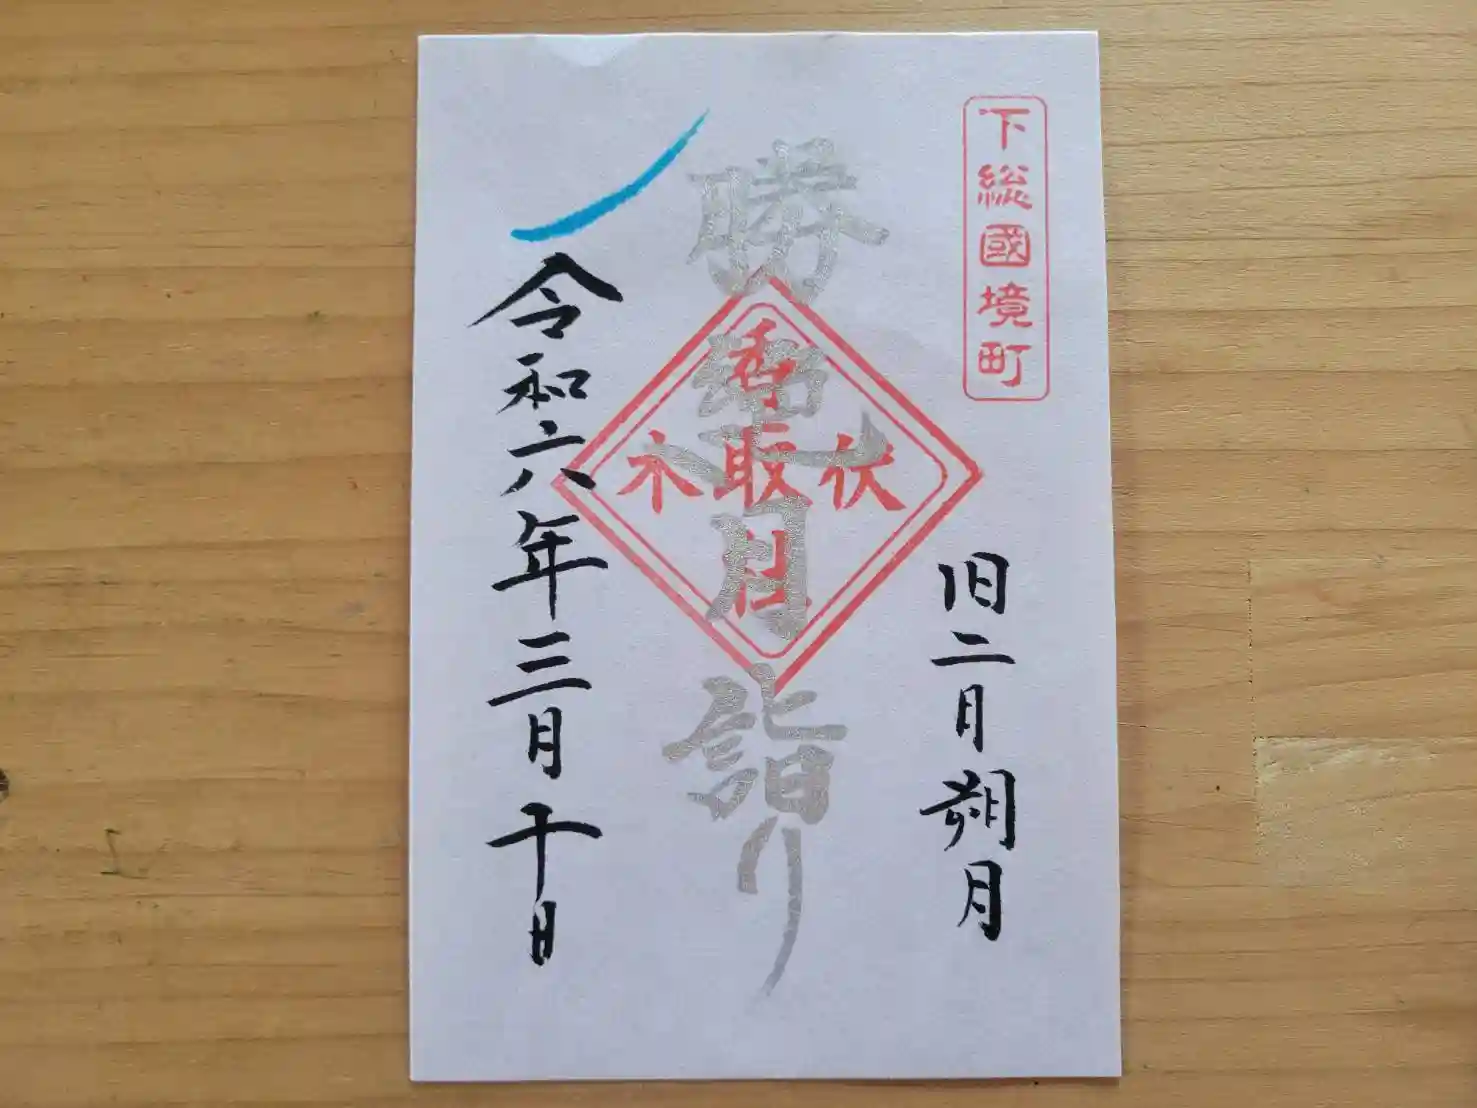 下総國境町
旧二月朔月
勝運月詣り
伏木
香取社
令和六年三月十日